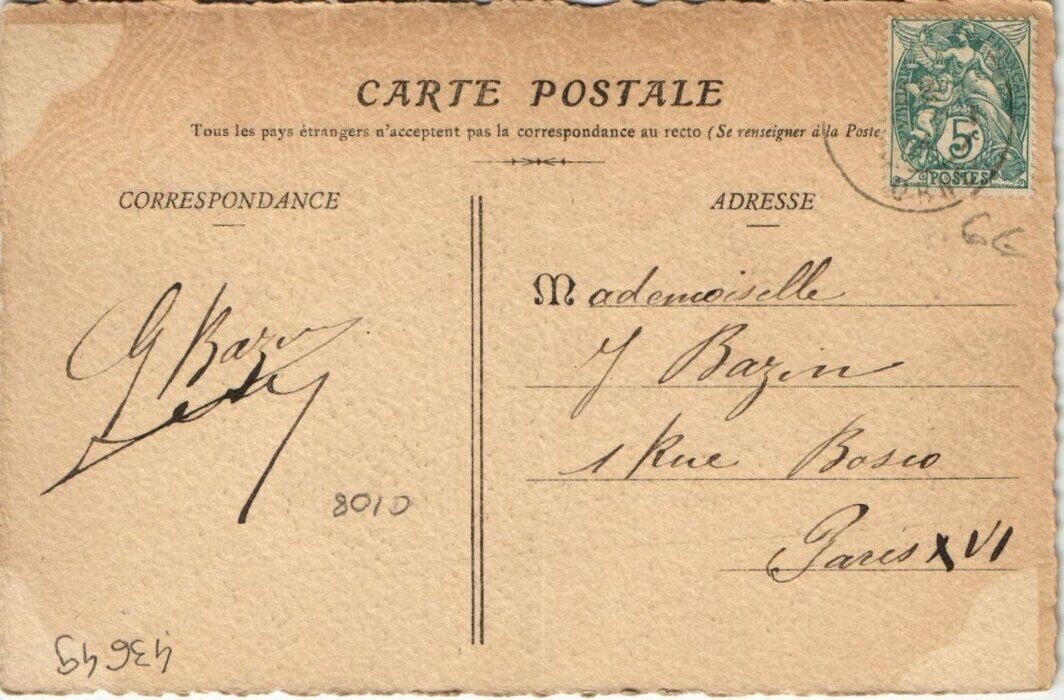 CARTE POSTALE
Tous les pays étrangers n'acceptent pas la correspondance au recto (Se renseigner à la Poste
CORRESPONDANCE
ADRESSE
5c
POSTES
G Bazin
8010
43649
Mademoiselle
J Bazin
1 Rue Bosio
Paris XVI